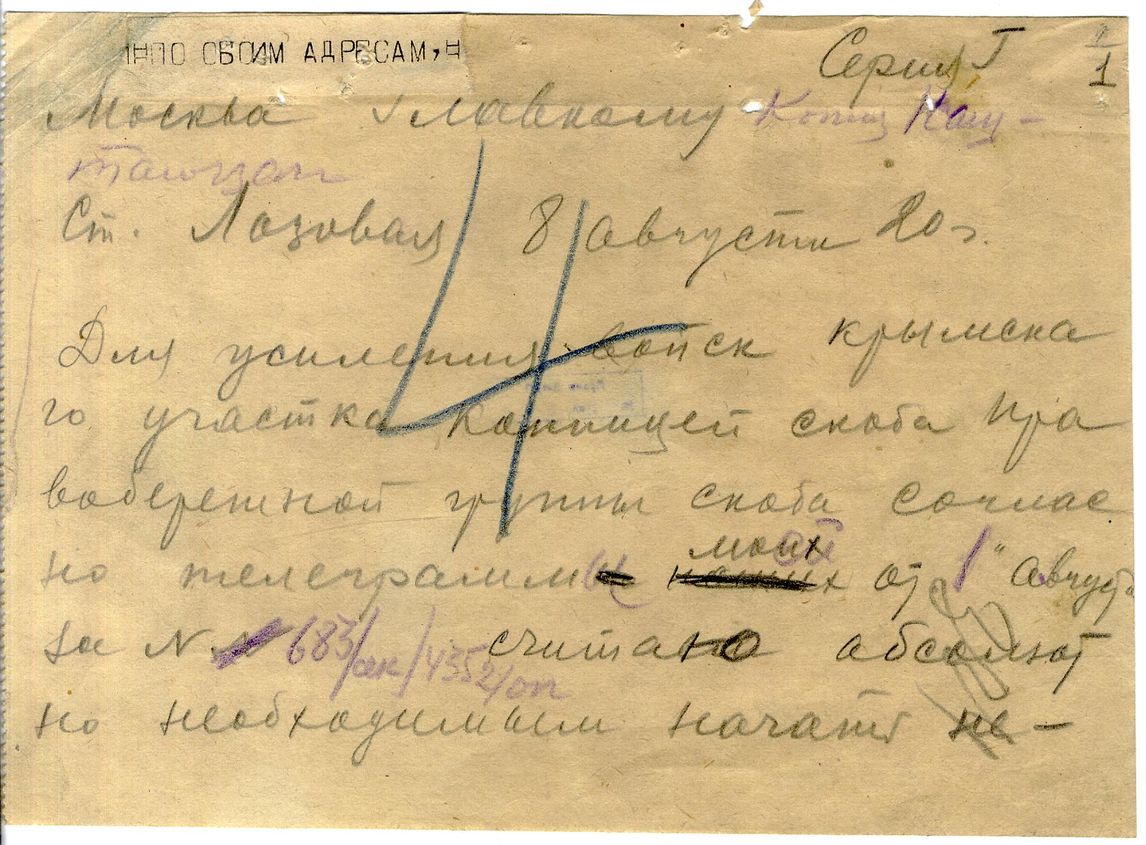 ПО СВОИМ АДРЕСАМ, Н
Серия Г 1
Москва Главкому Копия Наш-
таюзап
Ст. Лозовая 8 августа 20 г.
4
Для усиления войск крымска
го участка конницей скоба Пра
вобережной группы скоба соглас
но телеграмме моей от 1" августа
за N 683/сек/4352/оп считаю абсолют
но необходимым начать не-